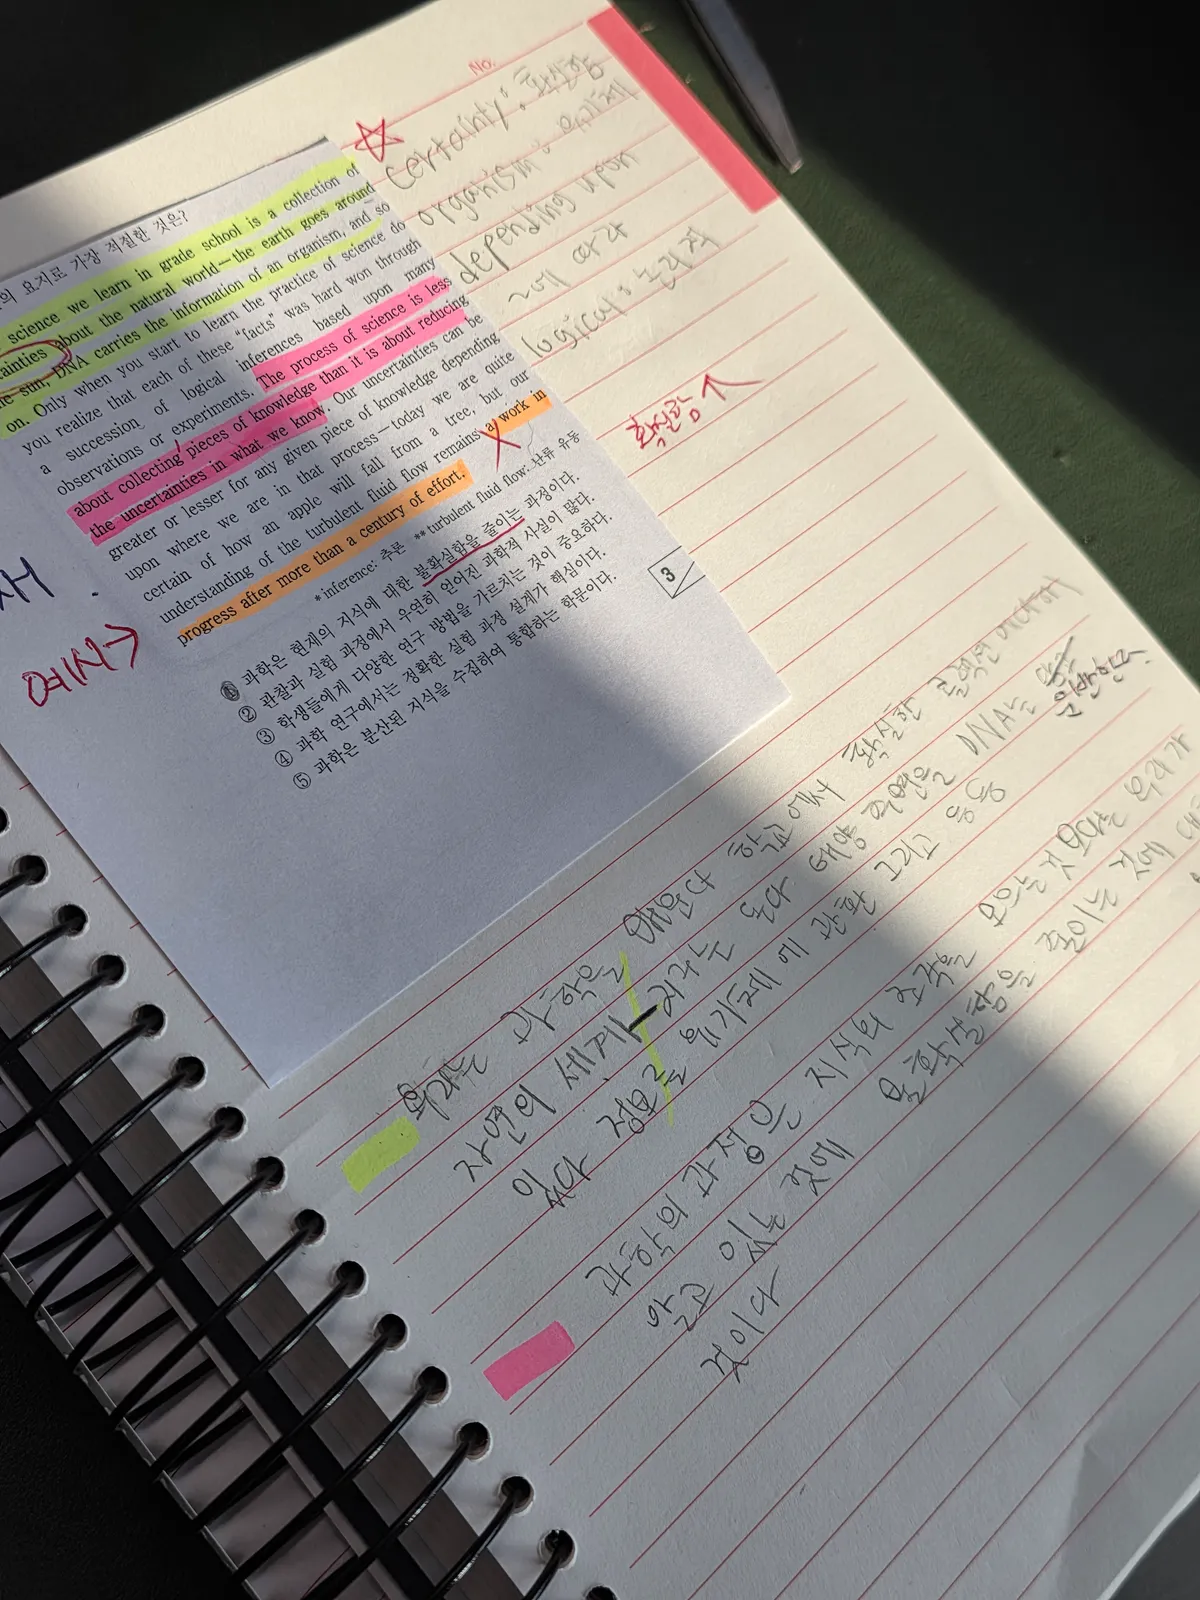 No.
의 요지로 가장 적절한 것은?
science we learn in grade school is a collection of
ainties about the natural world—the earth goes around
the sun, DNA carries the information of an organism, and so
on. Only when you start to learn the practice of science do
you realize that each of these "facts" was hard won through
a succession of logical inferences based upon many
observations or experiments. The process of science is less
about collecting pieces of knowledge than it is about reducing
the uncertainties in what we know. Our uncertainties can be
greater or lesser for any given piece of knowledge depending
upon where we are in that process—today we are quite
certain of how an apple will fall from a tree, but our
understanding of the turbulent fluid flow remains a work in
progress after more than a century of effort.
*inference: 추론 **turbulent fluid flow: 난류 유동
① 과학은 현재의 지식에 대한 불확실함을 줄이는 과정이다.
② 관찰과 실험 과정에서 우연히 얻어진 과학적 사실이 많다.
③ 학생들에게 다양한 연구 방법을 가르치는 것이 중요하다.
④ 과학 연구에서는 정확한 실험 과정 설계가 핵심이다.
⑤ 과학은 분산된 지식을 수집하여 통합하는 학문이다.
3
예시→
certainty: 확실함
organism: 유기체
depending upon
~에 따라
logical: 논리적
확실함↑
우리는 과학을 배운다 학교에서 확실한 콜렉션
자연의 세계 - 지구는 돈다 태양 주변을 DNA는
있다 정보를 유기체에 관한 그리고 등등
과학의 과정은 지식의 조각을 모으는 것 보다는 우리가
알고 있는 것에 불확실함을 줄이는 것에
것이다